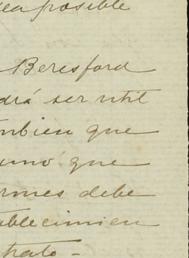 ea posible
Beresford
drá ser util
mbien que
umó que
rmes debe
tablecimien
trato -